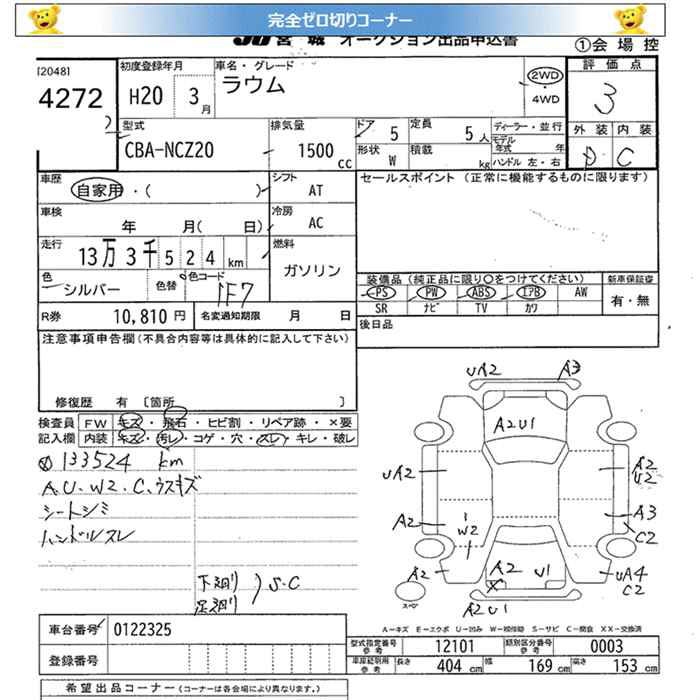 完全ゼロ切りコーナー
JU 宮城 オークション出品申込書 ①会場控
[2048]
4272
初度登録年月 H20 3月
車名・グレード ラウム
2WD ・4WD
評価点 3
型式 CBA-NCZ20
排気量 1500 cc
ドア 5 定員 5人
形状 W 積載 kg
ディーラー・並行
モデル年式 年
ハンドル 左・右
外装 内装
D C
車歴 自家用・( )
シフト AT
セールスポイント (正常に機能するものに限ります)
車検 年 月( 日)
冷房 AC
走行 13万3千524km
燃料 ガソリン
色 シルバー 色替 色コード 1F7
装備品(純正品に限り○をつけてください) 新車保証書
PS PW ABS エアB AW 有・無
SR ナビ TV カワ
R券 10,810円 名変通知期限 月 日
後日品
注意事項申告欄(不具合内容等は具体的に記入して下さい)
修復歴 有 〔箇所 〕
検査員 FW キズ・飛石・ヒビ割・リペア跡・×要
記入欄 内装 キズ・汚レ・コゲ・穴・スレ・キレ・破レ
133524 km
A.U.W2.C.ウスキズ
シートシミ
ハンドルスレ
下廻リ
足廻リ
S.C
UA2 A3
A2U1
UA2 A2 U2
A2 W2 A3 C2
A2 A2 U1 UA4 C2
スペア A2U1
A-キズ E-エクボ U-凹み W-補修跡 S-サビ C-腐食 XX-交換済
車台番号 0122325
登録番号
型式指定番号参考 12101 類別区分番号参考 0003
長さ 404 cm 幅 169 cm 高さ 153 cm
希望出品コーナー(コーナーは各会場により異なります。)